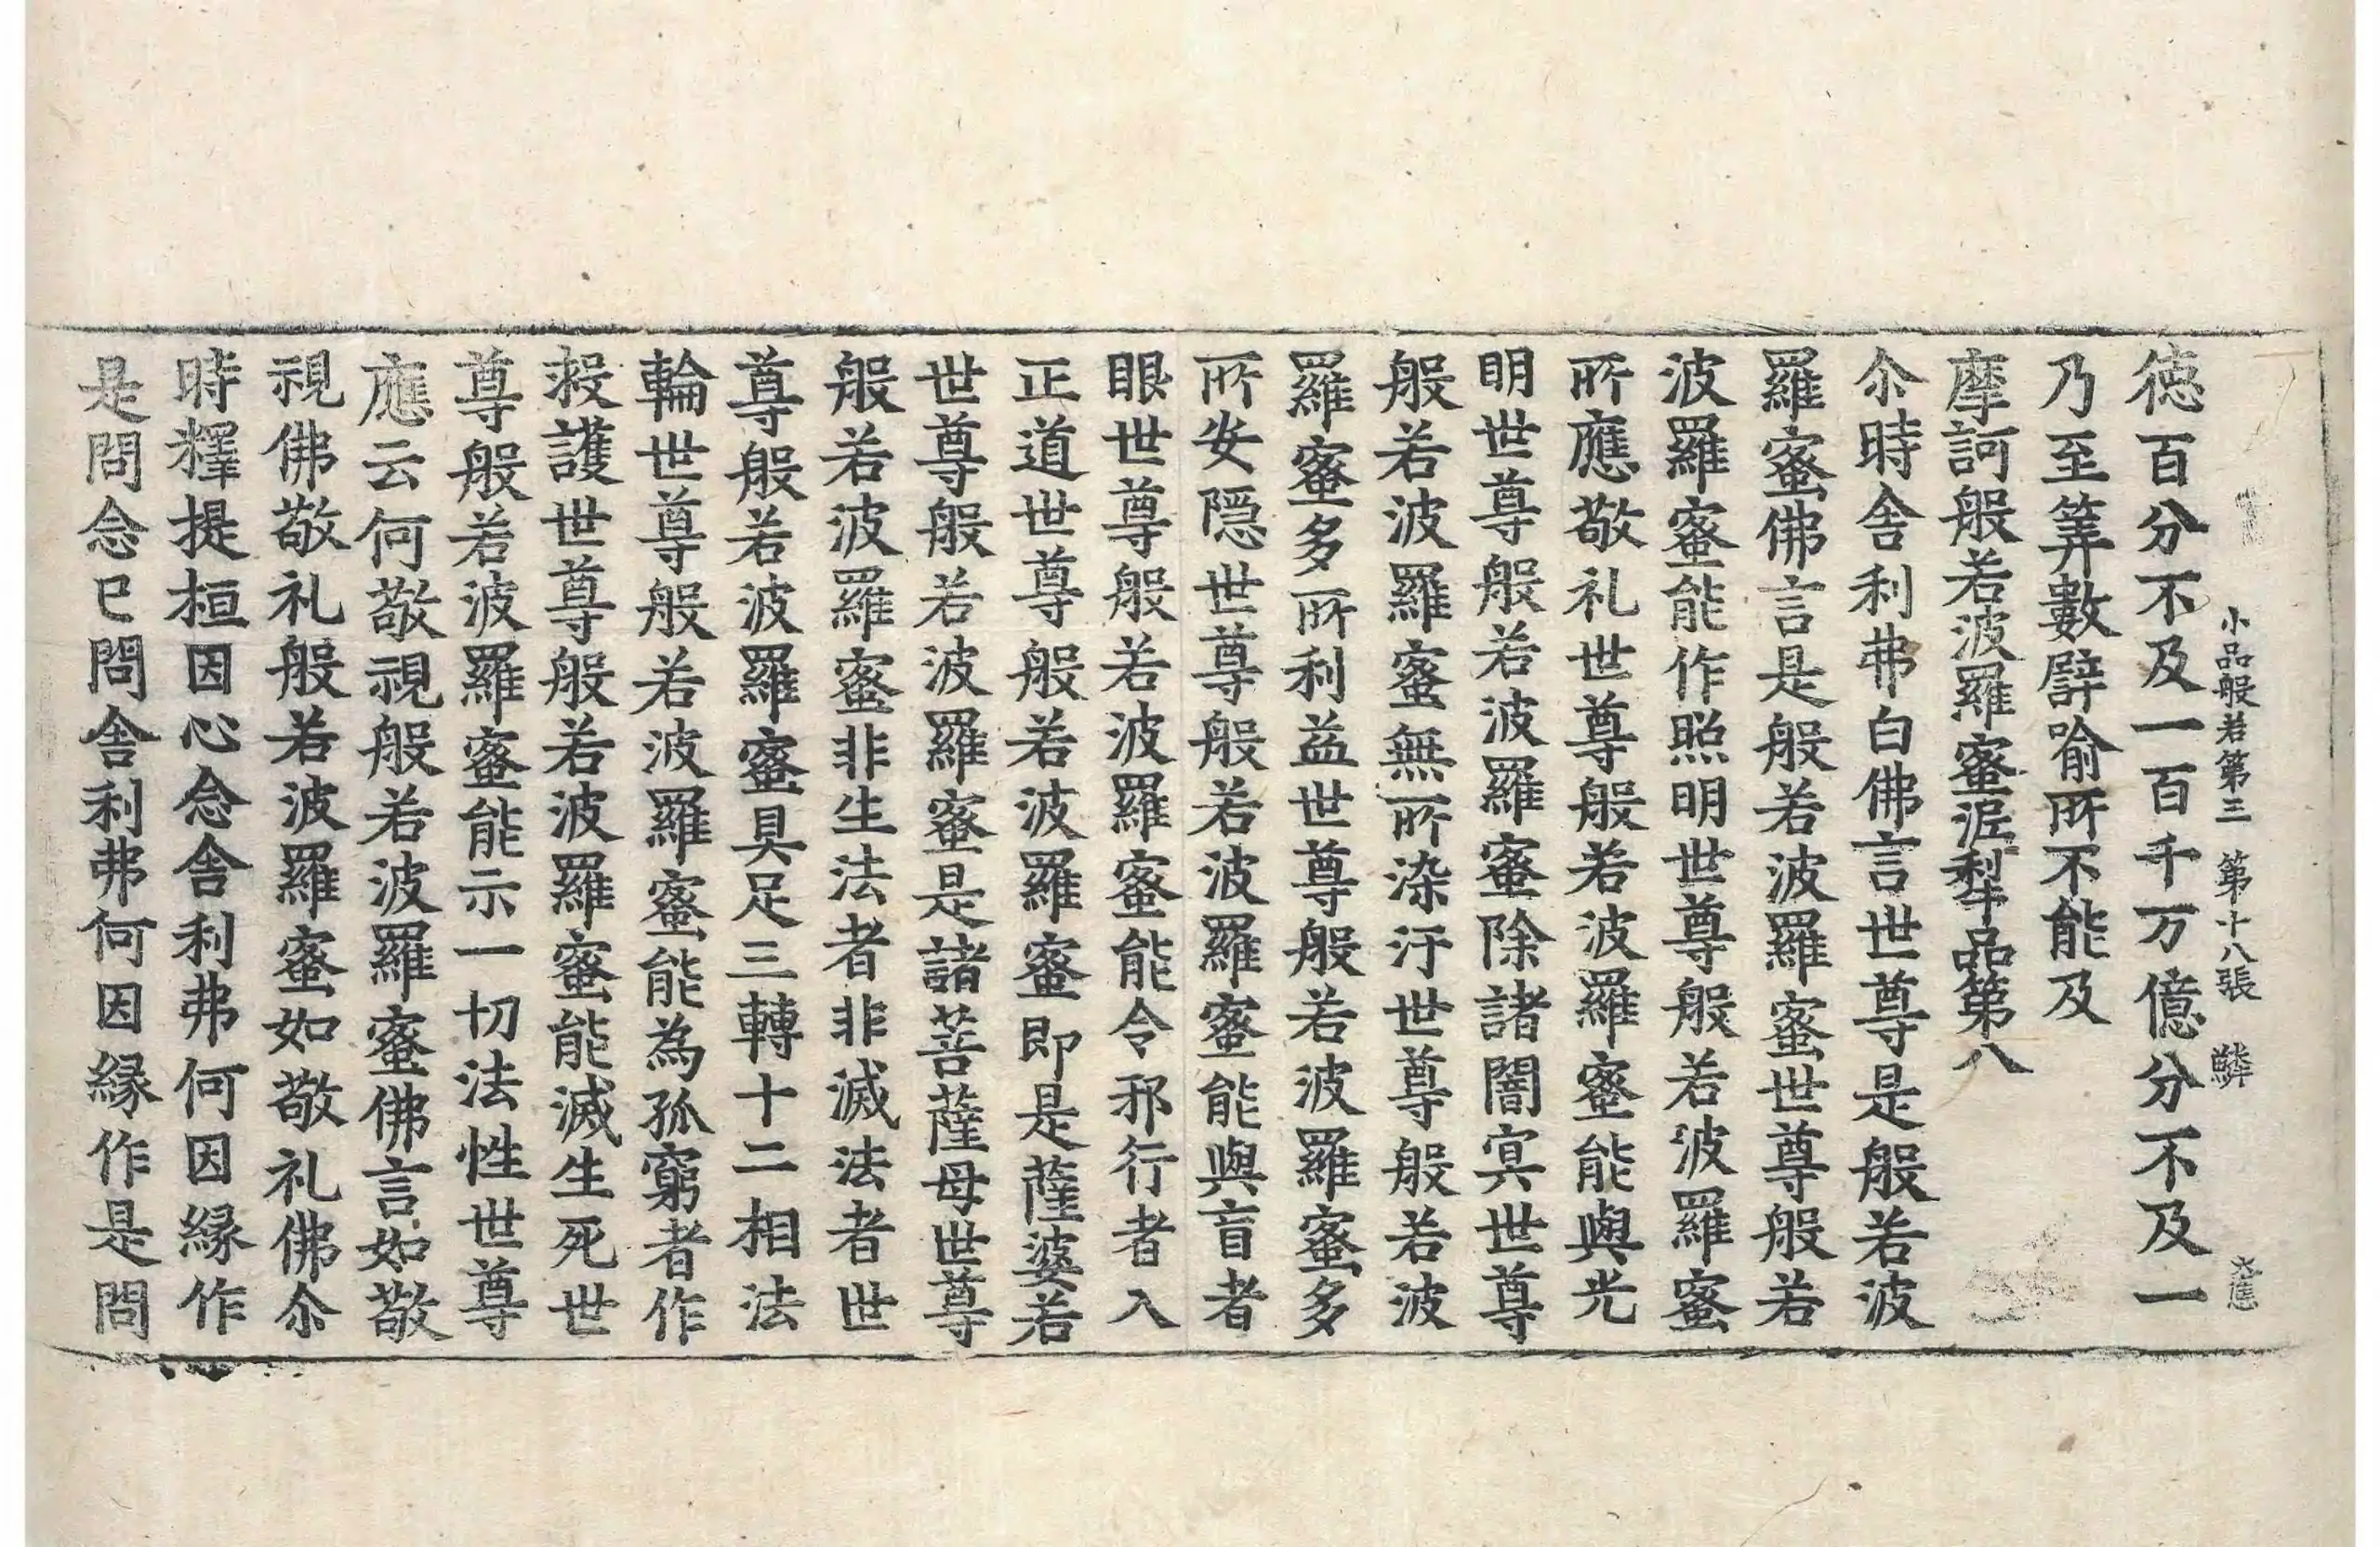 小品般若第三　第十八張　鱗
德百分不及一百千万億分不及一
乃至筭數譬喻所不能及
摩訶般若波羅蜜泥犁品第八
尒時舍利弗白佛言世尊是般若波
羅蜜佛言是般若波羅蜜世尊般若
波羅蜜能作照明世尊般若波羅蜜
所應敬礼世尊般若波羅蜜能與光
明世尊般若波羅蜜除諸闇冥世尊
般若波羅蜜無所染汙世尊般若波
羅蜜多所利益世尊般若波羅蜜多
所安隱世尊般若波羅蜜能與盲者
眼世尊般若波羅蜜能令邪行者入
正道世尊般若波羅蜜即是薩婆若
世尊般若波羅蜜是諸菩薩母世尊
般若波羅蜜非生法者非滅法者世
尊般若波羅蜜具足三轉十二相法
輪世尊般若波羅蜜能為孤窮者作
救護世尊般若波羅蜜能滅生死世
尊般若波羅蜜能示一切法性世尊
應云何敬視般若波羅蜜佛言如敬
視佛敬礼般若波羅蜜如敬礼佛尒
時釋提桓因心念舍利弗何因緣作
是問念已問舍利弗何因緣作是問